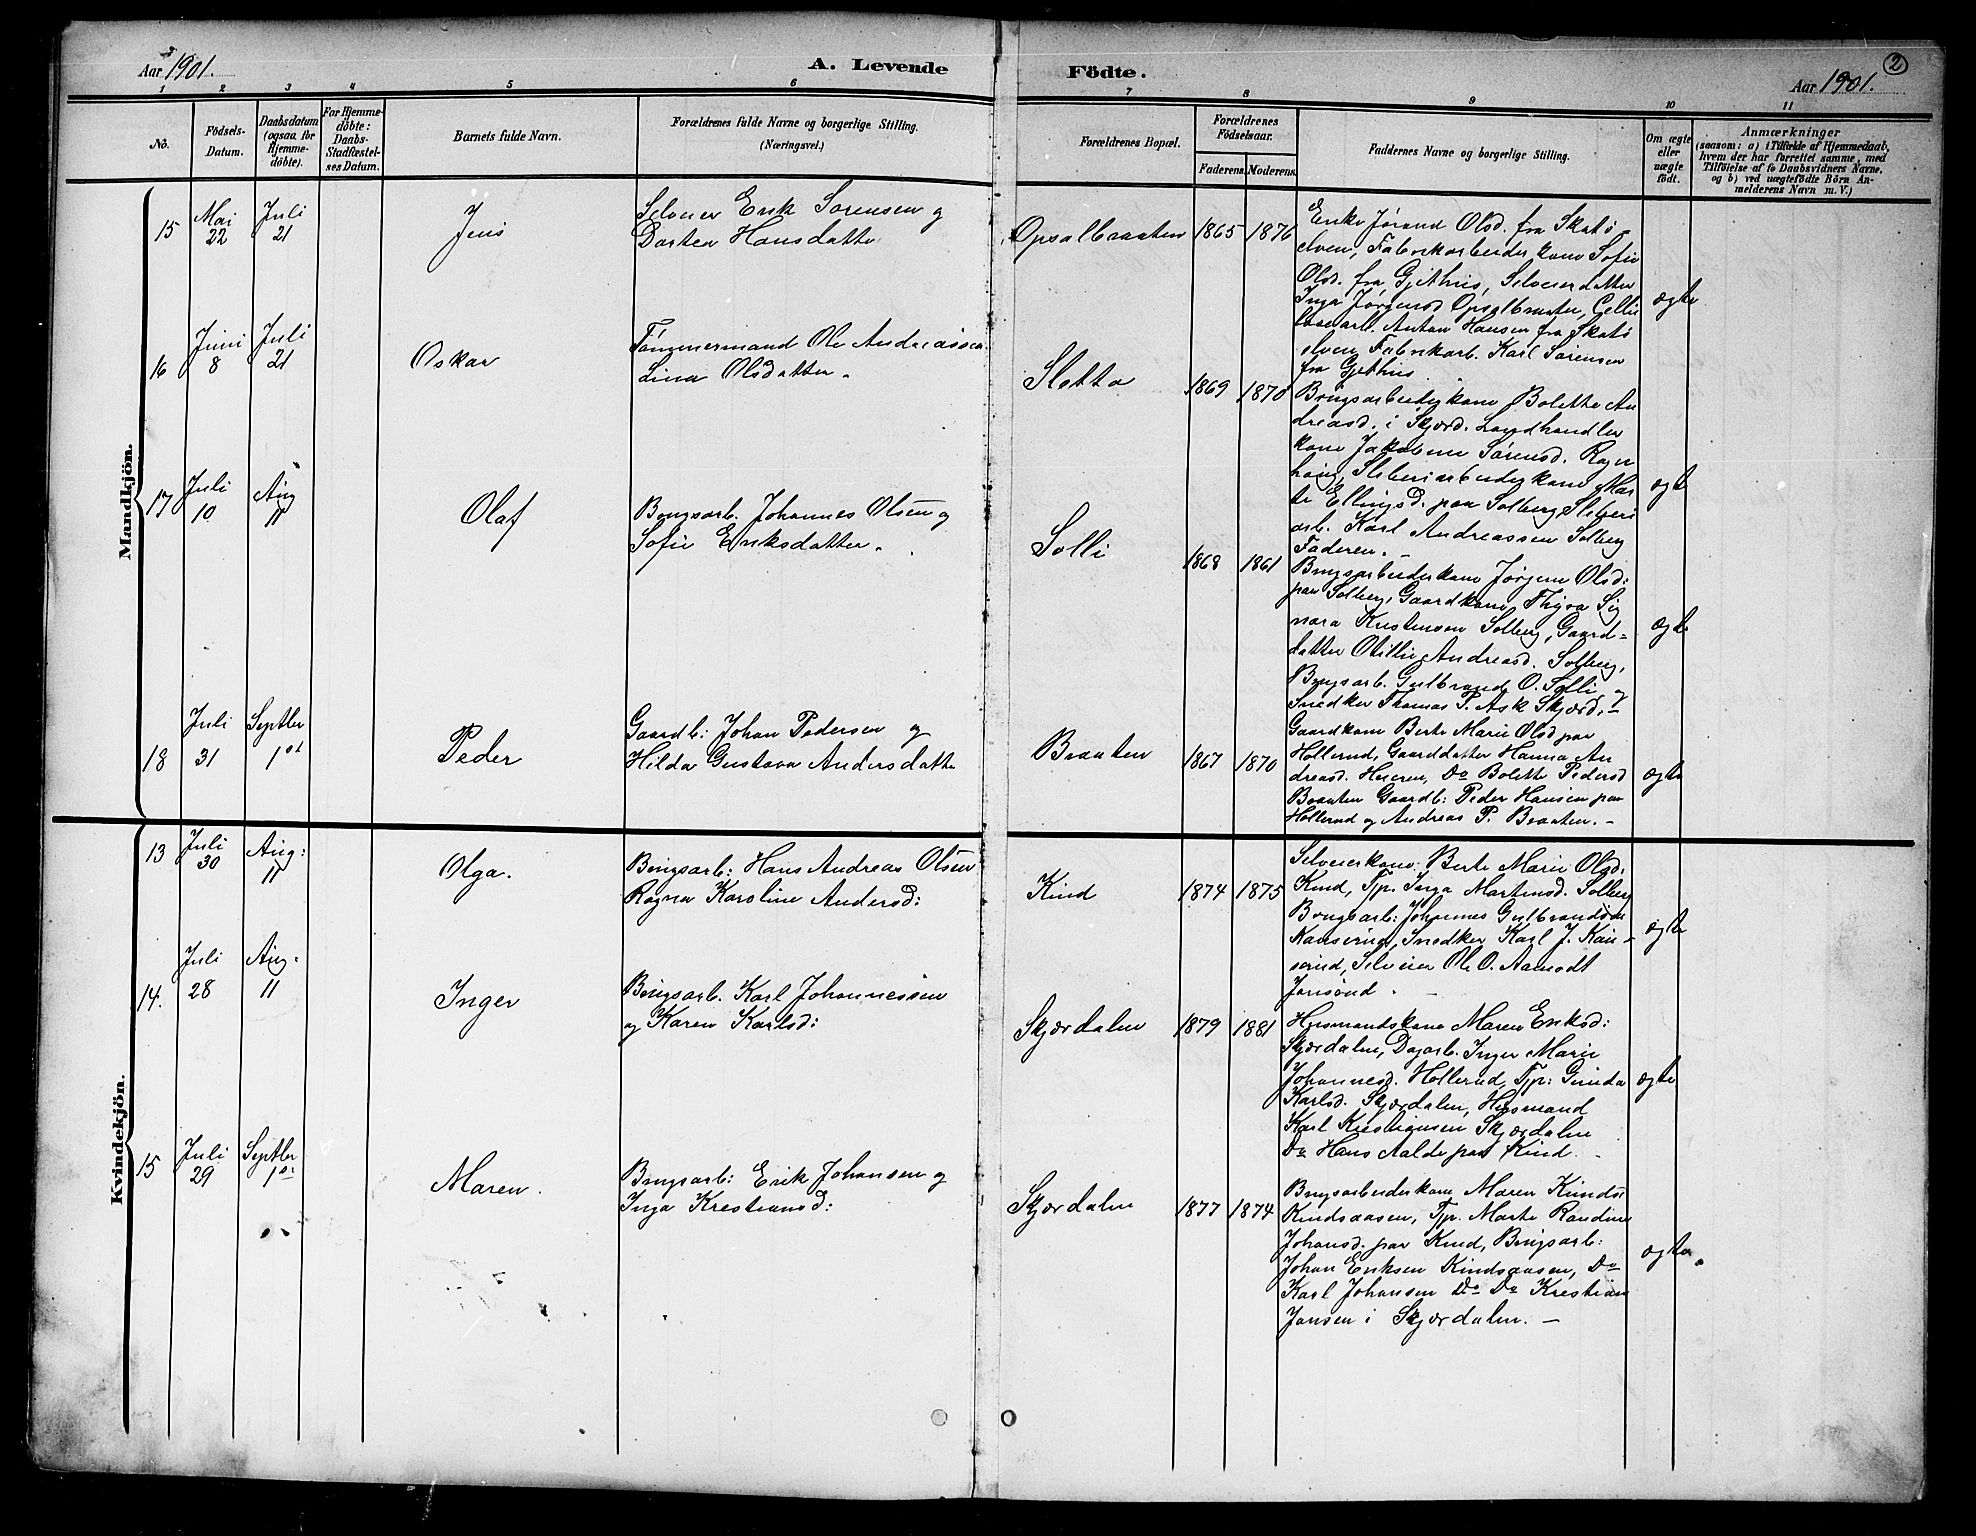 Aar 1901.
A. Levende
Födte.
Aar 1901.
2
1 2 3 4 5 6 7 8 9 10 11
No.
Födsels-
Datum.
Daabsdatum
(ogsaa for
Hjemme-
döbte).
For Hjemme-
döbte:
Daabs-
Stadfæstel-
ses Datum.
Barnets fulde Navn.
Forældrenes fulde Navne og borgerlige Stilling.
(Næringsvei.)
Forældrenes Bopæl.
Forældrenes
Födselsaar.
Faderens. Moderens.
Faddernes Navne og borgerlige Stilling.
Om ægte
eller
uægte
födt.
Anmærkninger
(saasom: a) i Tilfælde af Hjemmedaab,
hvem der har forrettet samme, med
Tilföielse af to Daabsvidners Navne,
og b) ved uægtefödte Börn An-
melderens Navn m. V.)
Mandkjön.
15
Mai
22
Juli
21
Jens
Selveier Erik Sorensen og
Dortea Hansdatter
Opsalbraaten
1865
1876
Enke Jørand Olsd. fra Skatø
elven, Fabrikarbeiderkone Sofie
Olsd. fra Gjethus, Selveierdatter
Inga Jørgensd Opsalbraaten, Cellu
losearb. Anton Hansen fra Skatø
elven Fabrikarb. Karl Sørensen
fra Gjethus
ægte
16
Juni
8
Juli
21
Oskar
Tømmermand Ole Andreassen
Lina Olsdatter.
Sletta
1869
1870
Brugsarbeiderkone Bolette An
dreasd. i Skjærd. Landhandler
kone Jakobine Sørensd. Ragn
haug, Sliberiarbeiderkone Mar
te Ellingsd. paa Solberg, Sliberi
arb. Karl Andreassen Solberg
Faderen.
ægte
17
Juli
10
Aug
11
Olaf
Brugsarb. Johannes Olsen og
Sofie Eriksdatter.
Solli
1868
1861
Brugsarbeiderkone Jørgine Olsd:
paa Solberg, Gaardkone Thyra Sig
nora Kristensen Solberg, Gaard-
datter Otillie Andreasd. Solberg,
Brugsarb. Gulbrand O. Solli og
Snedker Thomas P. Ask Skjærd.
ægte
18
Juli
31
Septbr
1st
Peder
Gaardb: Johan Pedersen og
Hilda Gustava Andersdatter
Braaten
1867
1870
Gaardkone Berte Marie Olsd paa
Hollerud, Gaarddatter Hanna An
dreasd. Hueren, Do Bolette Pedersd
Braaten Gaardb: Peder Hansen paa
Hollerud og Andreas P. Braaten.
ægte
Kvindekjön.
13
Juli
30
Aug:
11
Olga.
Brugsarb: Hans Andreas Olsen
Ragna Karoline Andersd:
Kind
1874
1875
Selveierkone: Berte Marie Olsd:
Kind, Tjp. Inga Martinsd. Solberg
Brugsarb: Johannes Gulbrandsen
Kauserud, Snedker Karl J. Kau-
serud, Selveier Ole O. Aamodt
ægte
14.
Juli
28
Aug.
11
Inger
Brugsarb. Karl Johannessen
og Karen Karlsd:
Skjærdalen
1879
1881
Husmandskone Maren Eriksd:
Skjærdalen, Dagarb. Inger Marie
Johannesd. Hollerud, Tjp: Ginida
Karlsd. Skjærdalen, Husmand
Karl Kristiansen Skjærdalen
Do Hans Aalde paa Kind.
ægte
15
Juli
29
Septbr
1st
Maren.
Brugsarb: Erik Johansen og
Inga Kristiansd:
Skjærdalen
1877
1874
Brugsarbeiderkone Maren
Kindsaasen, Tjp. Marte Randine
Johansd. paa Kind, Brugsarb:
Johan Eriksen Kindsaasen, Do
Karl Johansen Do Do Kristian
Jansen i Skjærdalen.
ægte